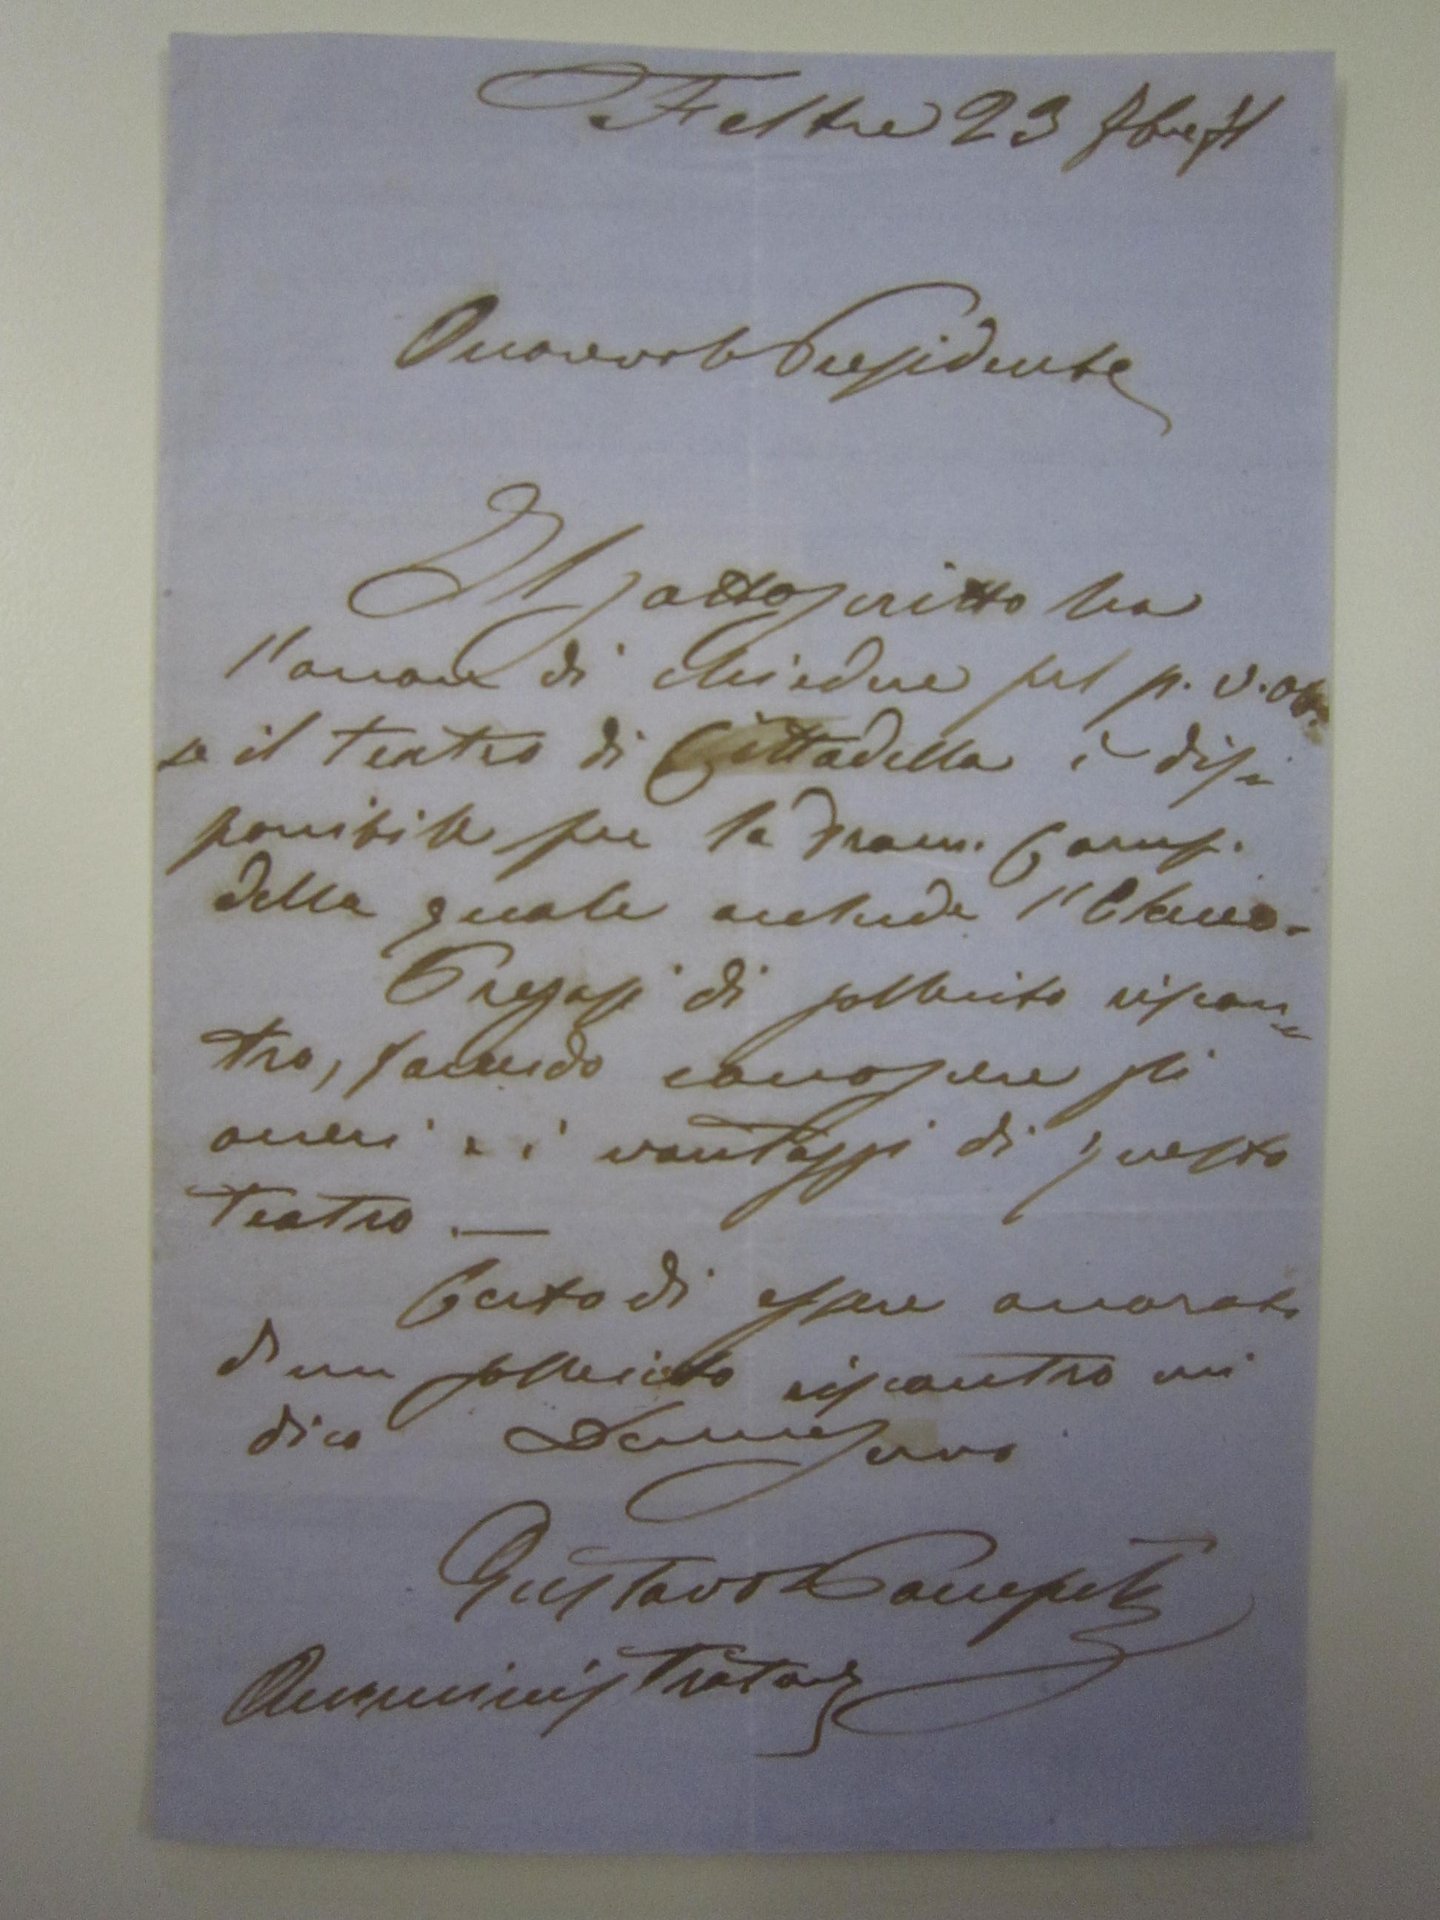 Feltre 23 8bre 71
Onorevole Presidente
Il sottoscritto ha
l'onore di chiedere pel p. v. ott.
se il teatro di Cittadella è dis-
ponibile per la Dram. Comp.
della quale acclude l'Elenco.
Pregasi di sollecito riscon-
tro, facendo conoscere gli
oneri e i vantaggi di questo
teatro. —
Certo di essere onorato
d'un sollecito riscontro mi
dico Devmo servo
Gustavo
Amministratore